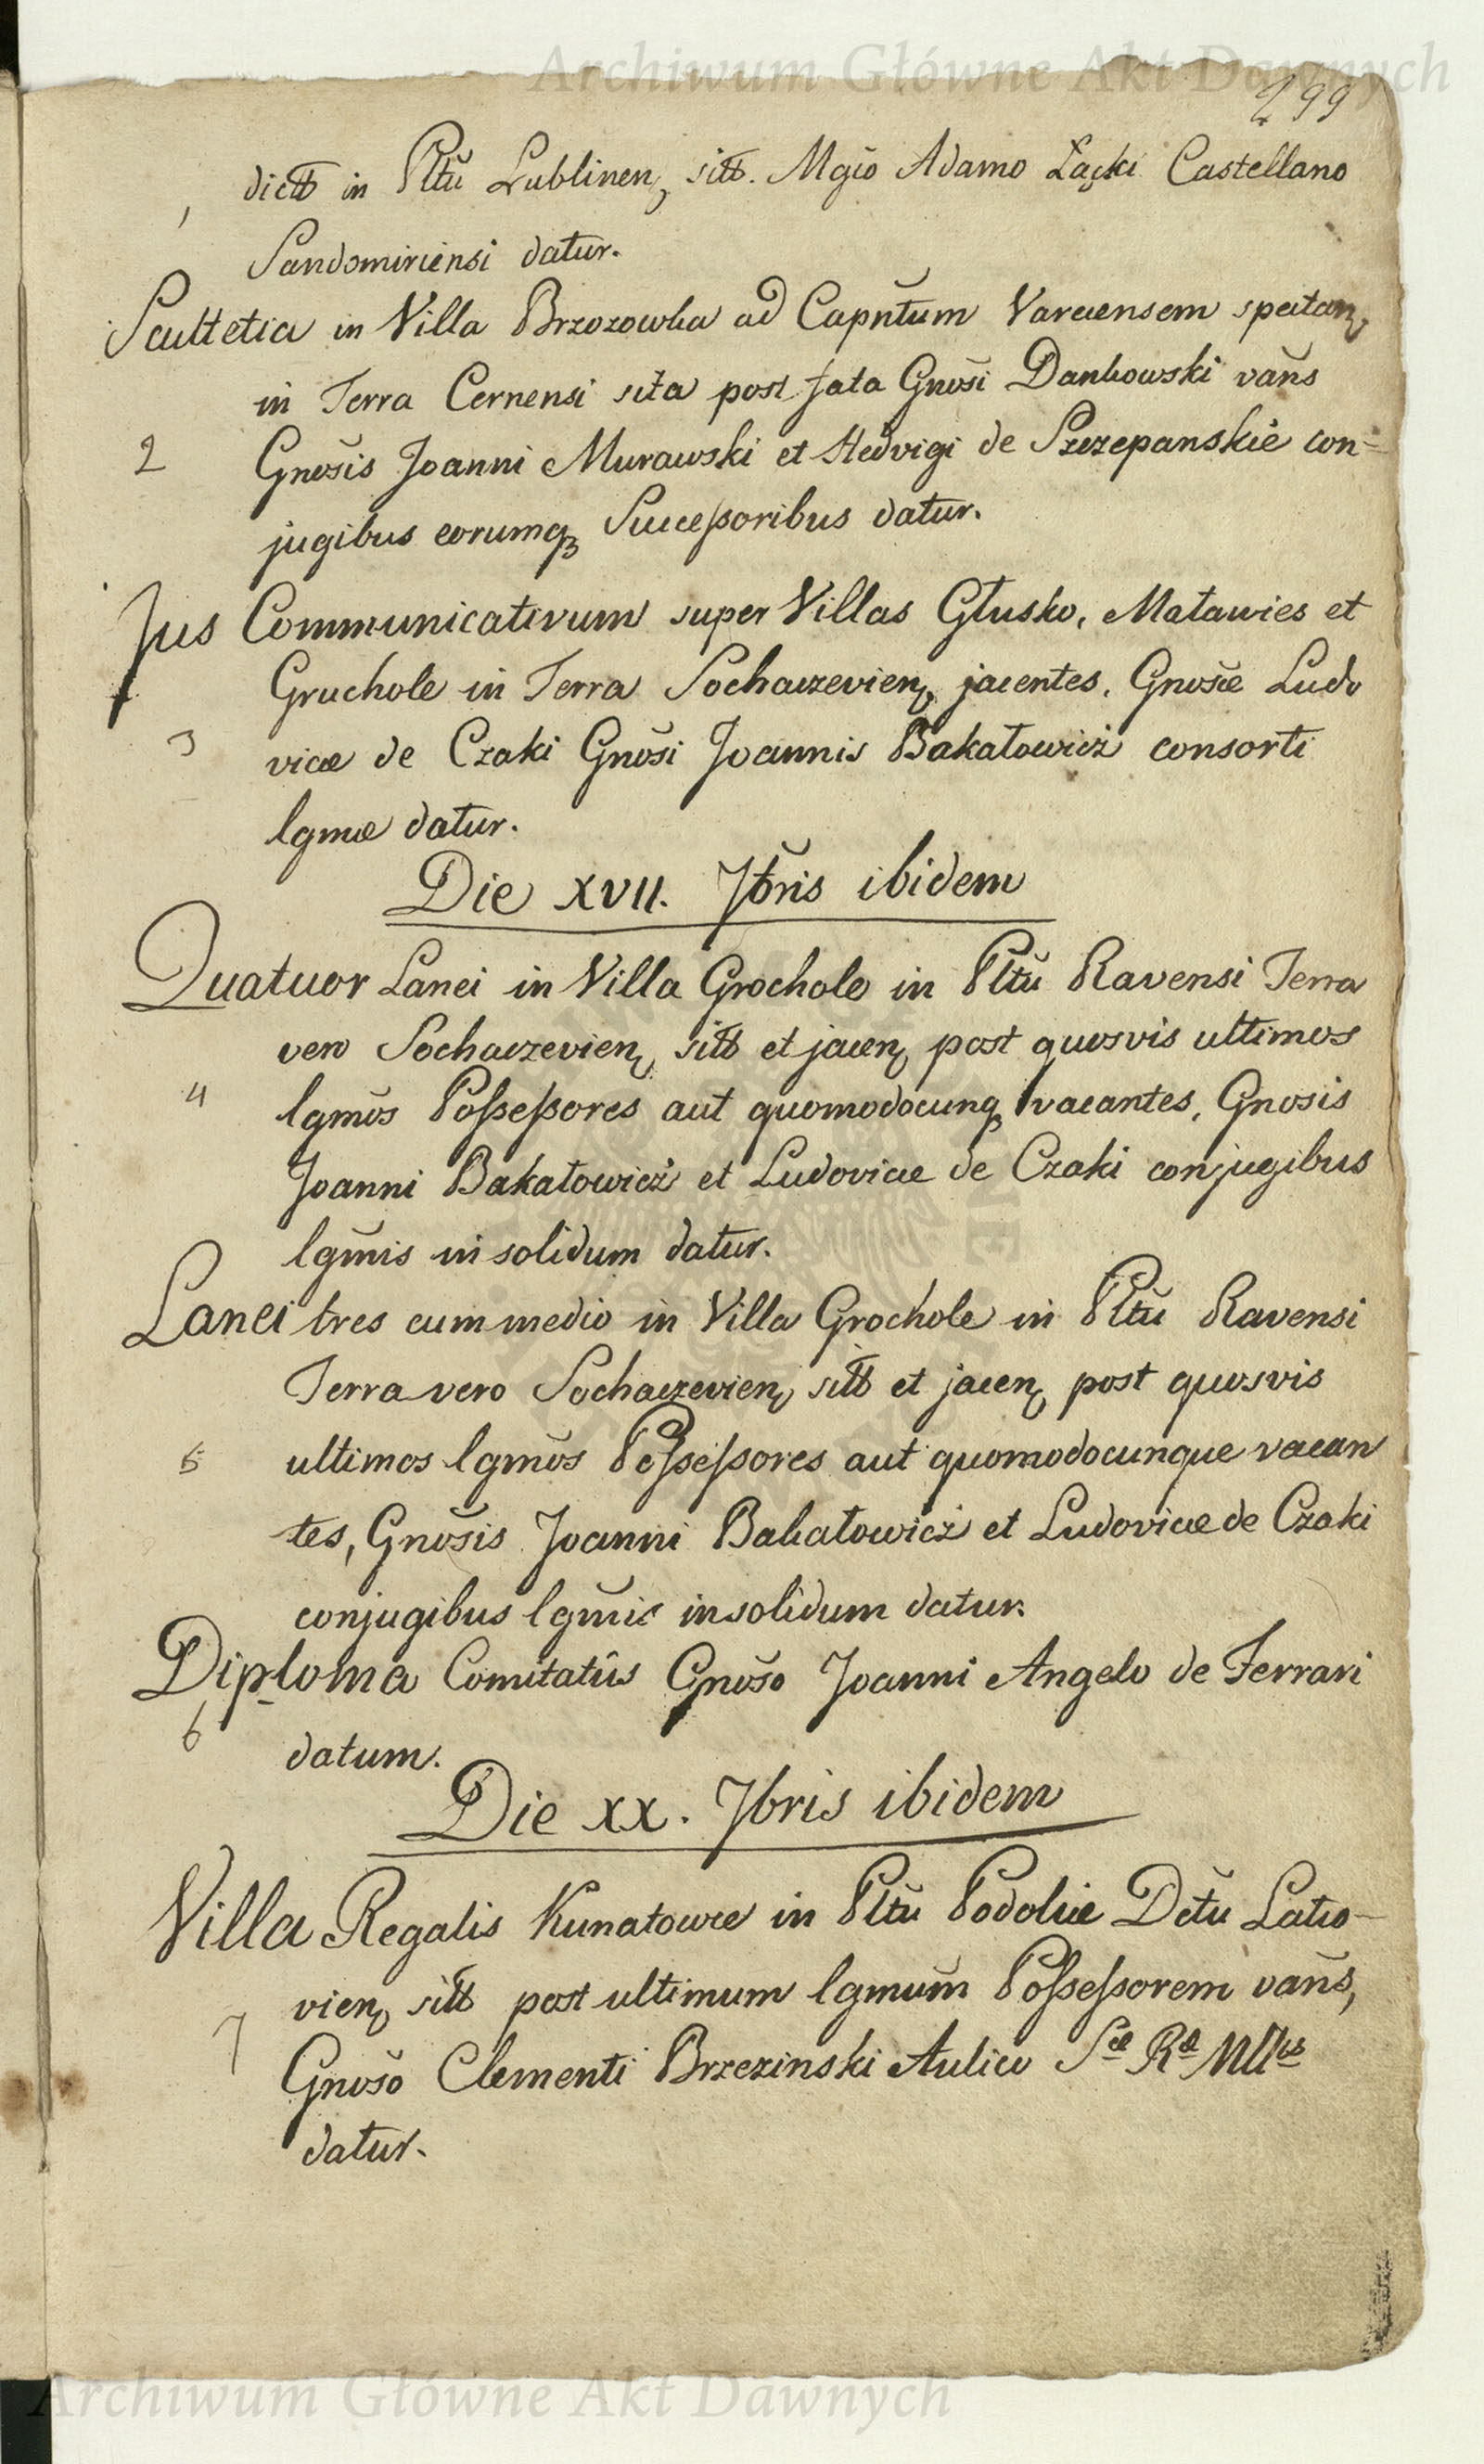 Archiwum Główne Akt Dawnych
299
dictt in Pltũ Lublinen, sitt. Mgio Adamo Łącki Castellano
1
Sandomiriensi datur.
Scultetia in Villa Brzozowka ad Capntum Varcensem spectan,
in Terra Cernensi sita post fata Gnosi Dankowski vans
2 Gnosis Joanni Murawski et Hedvigi de Szczepanskie con=
jugibus eorumq, Successoribus datur.
Jus Communicativum super Villas Głusko, Maławies et
Gruchole in Terra Sochaczevien, jacentes, Gnosæ Ludo
3 vicæ de Czaki Gnosi Joannis Bakałowicz consorti
lgmæ datur.
Die XVII. 7bris ibidem
Quatuor Lanei in Villa Grochole in Pltũ Ravensi Terra
vero Sochaczevien, sitt et jacen, post quosvis ultimos
4 lgmos Possessores aut quomodocunq, vacantes, Gnosis
Joanni Bakałowicz et Ludovicæ de Czaki conjugibus
lgmis in solidum datur.
Lanei tres cum medio in Villa Grochole in Pltũ Ravensi
Terra vero Sochaczevien, sitt et jacen, post quosvis
5 ultimos lgmos Possessores aut quomodocunque vacan
tes, Gnosis Joanni Bakałowicz et Ludovicæ de Czaki
conjugibus lgmis insolidum datur.
Diploma Comitatûs Gnoso Joanni Angelo de Ferrari
6
datum.
Die XX. 7bris ibidem
Villa Regalis Kunatowce in Pltũ Podoliæ Dctũ Latio-
vien, sitt post ultimum lgmum Possessorem vans,
7 Gnoso Clementi Brzezinski Aulico Sæ Ræ Mttis
datur.
Archiwum Główne Akt Dawnych